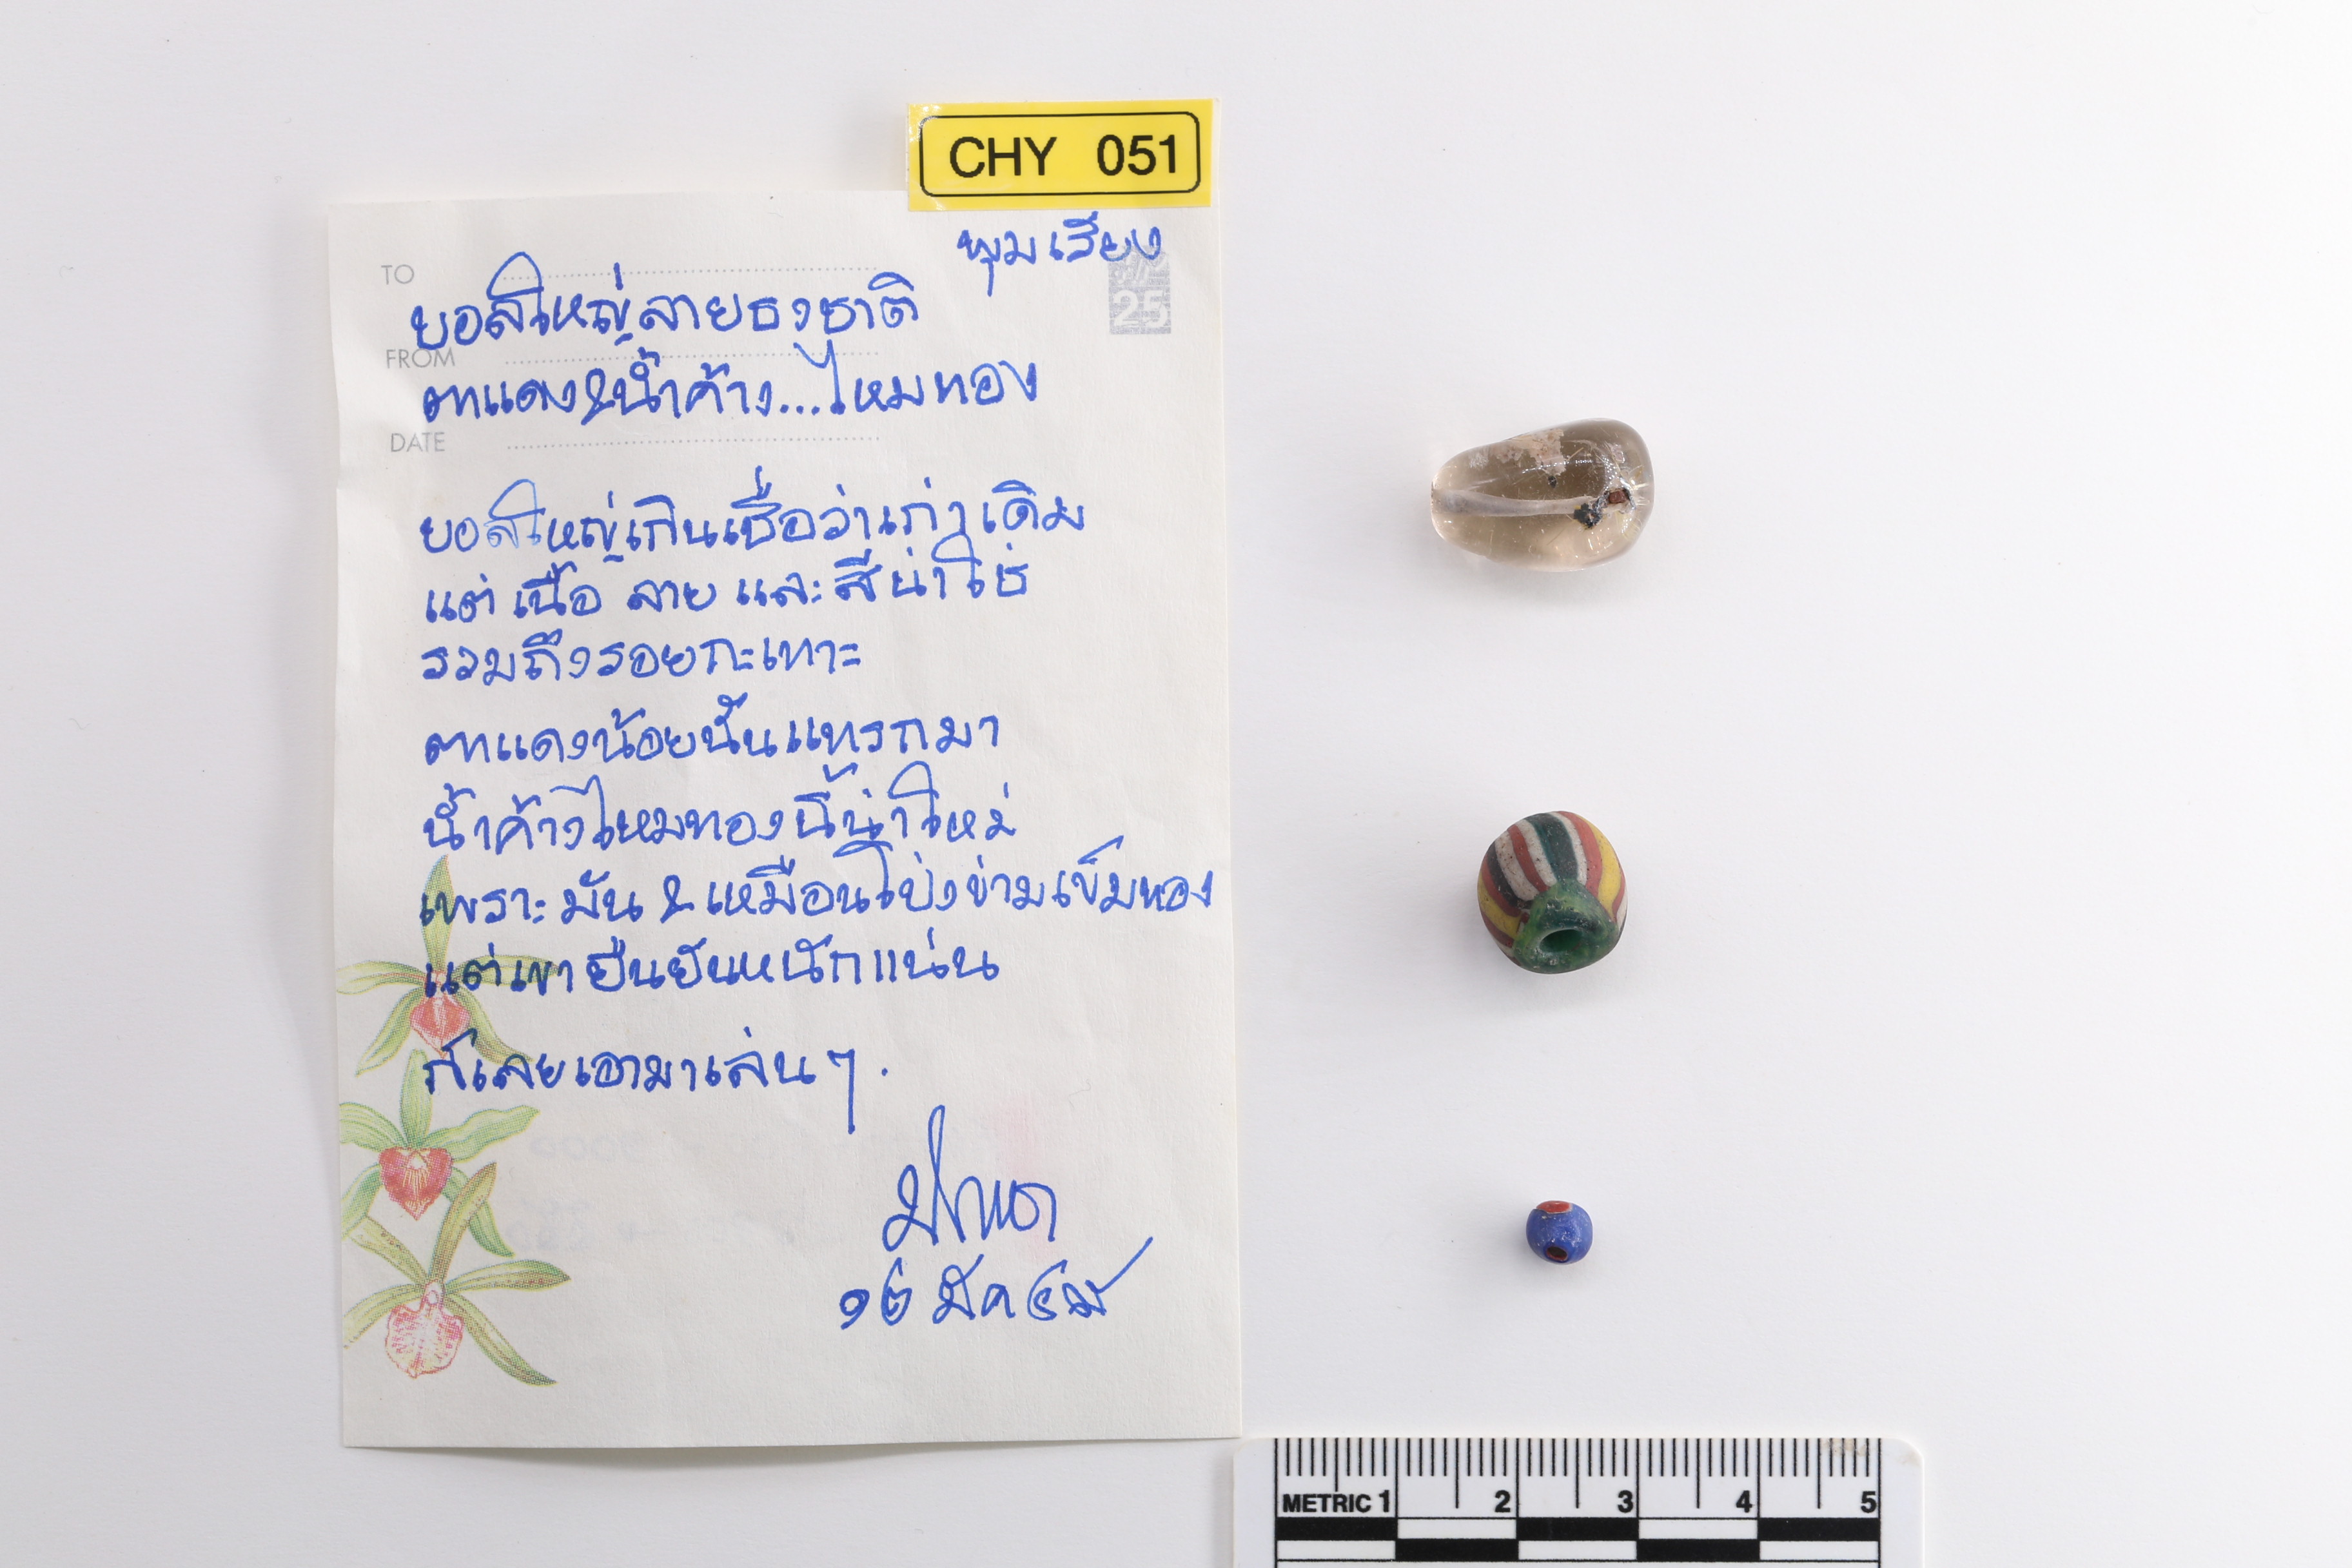 CHY 051
พุมเรียง
TO
ยอส์ใหญ่ลายธงชาติ
FROM
ตาแดง&น้ำค้าง...ไหมทอง
DATE
ใหญ่เกินเชื่อว่าเก่าเดิม
แต่ เนื้อ ลาย และ สีน่าใช่
รวมถึงรอยกะเทาะ
ตาแดงน้อยนั้นแทรกมา
น้ำค้างไหมทองนี้น่าใหม่
เพราะ มัน & เหมือนโป่งข่ามเข็มทอง
แต่เขายืนยันหนักแน่น
ก็เลยเอามาเล่นๆ.
๑๒ มีค ๔๘
METRIC 1 2 3 4 5